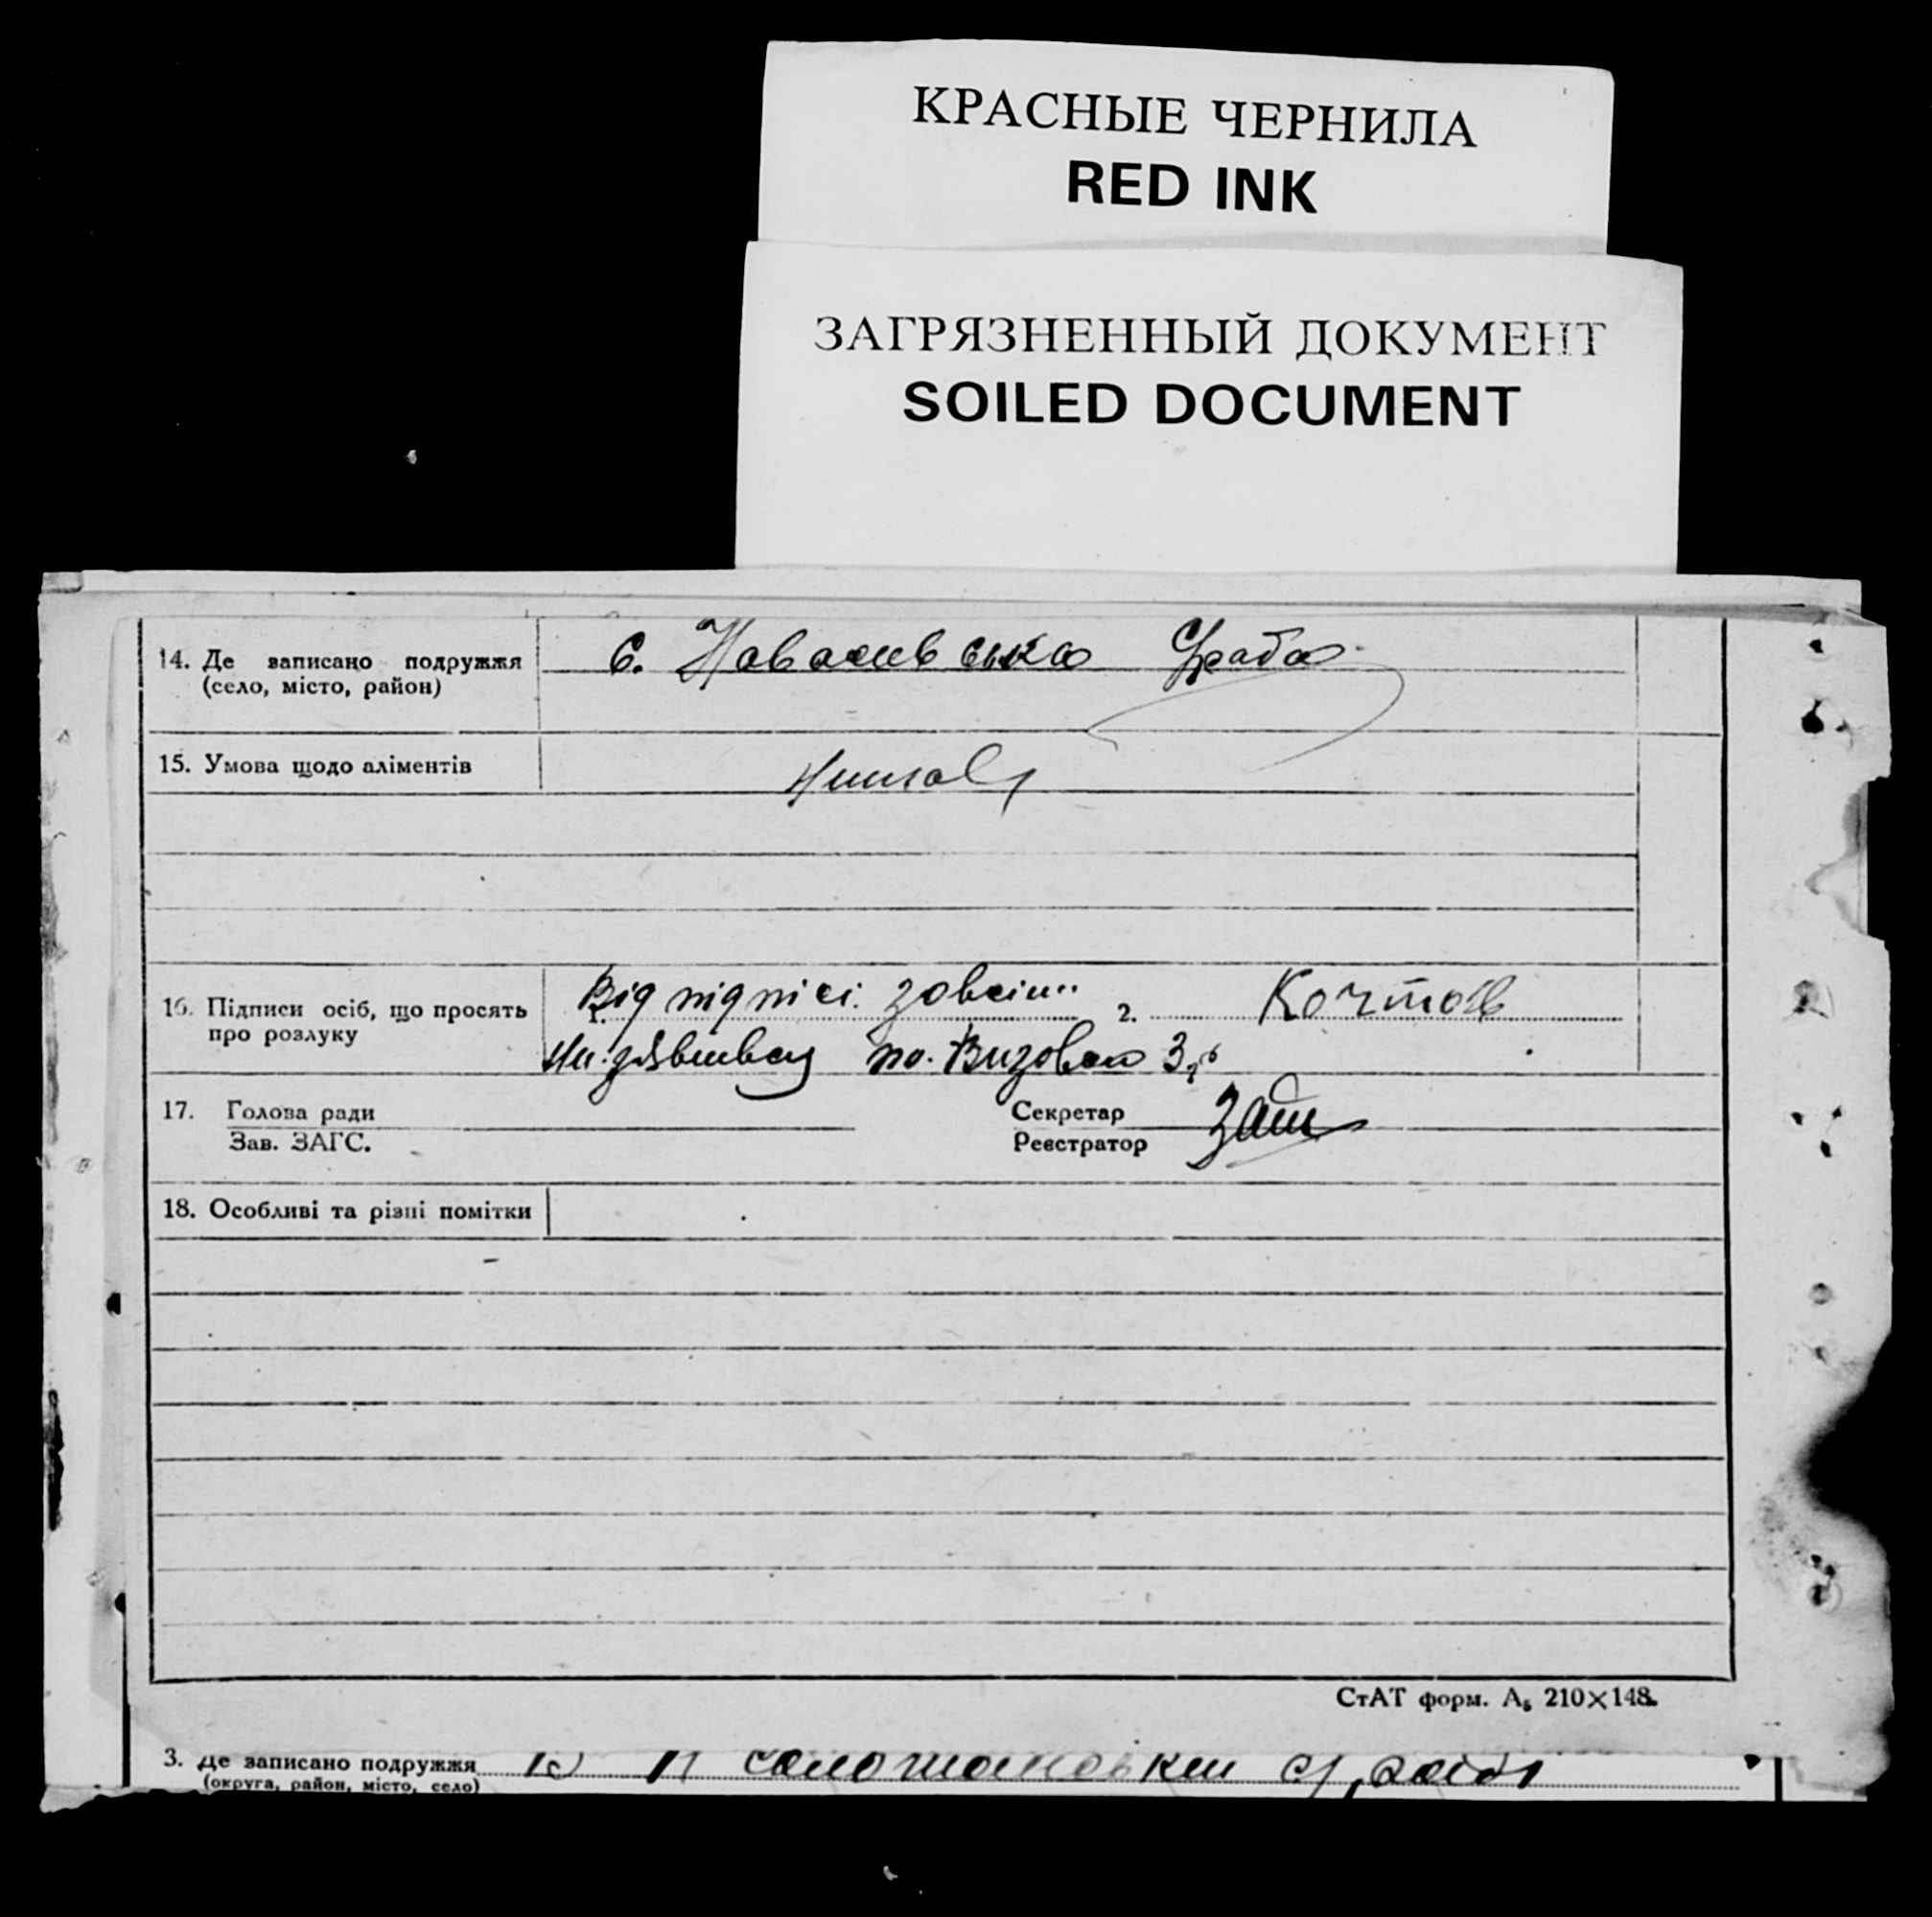 КРАСНЫЕ ЧЕРНИЛА
RED INK
ЗАГРЯЗНЕННЫЙ ДОКУМЕНТ
SOILED DOCUMENT
14. Де записано подружжя
(село, місто, район)
с.
15. Умова щодо аліментів
16. Підписи осіб, що просять
про розлуку
1. Від підпісі зовсім
2.
по.
17. Голова ради
Зав. ЗАГС.
Секретар
Реєстратор
18. Особливі та різні помітки
СтАТ форм. А5 210×148.
3. Де записано подружжя
(округа, район, місто, село)